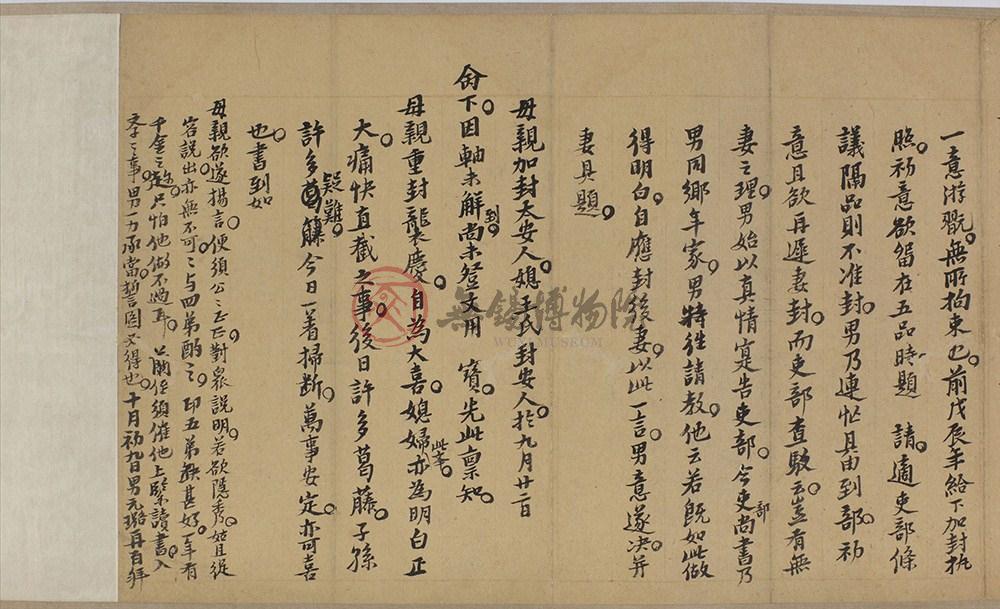 一意游戲無所拘束也前戊辰年給下加封執
照初意欲留在五品時題請適吏部條
議隔品則不准封男乃連忙具由到部初
意且欲再遲妻封而吏部查駁云豈有無
妻之理男始以真情寔告吏部今吏部尚書乃
男同鄉年家男特往請教他云若既如此做
得明白自應封後妻以此一言男意遂決并
妻具題
母親加封太安人媳王氏封安人於九月廿二日
命下因軸未解到尚未登文用寶先此禀知
母親重封龍襲慶自為大喜媳婦此事亦為明白正
大痛快直截之事後日許多葛藤子孫
許多疑難今日一著掃斷萬事安定亦可喜
也書到如
母親欲遂揚言便須公公正正對眾說明若欲隱秀姑且從
容說出亦無不可可与四弟酌之印五弟甚好年有
千金之題只怕他做不過耳關任須催他上緊讀書入
李之事男一力承當誓圖必得也十月初九日男元璐再百拜
無錫博物院
WUXI MUSEUM